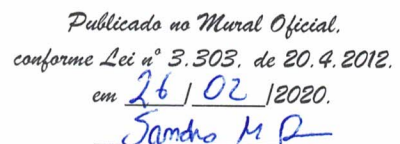 Publicado no Mural Oficial,
conforme Lei nº 3.303, de 20.4.2012.
em 26 / 02 /2020.
Sandro M